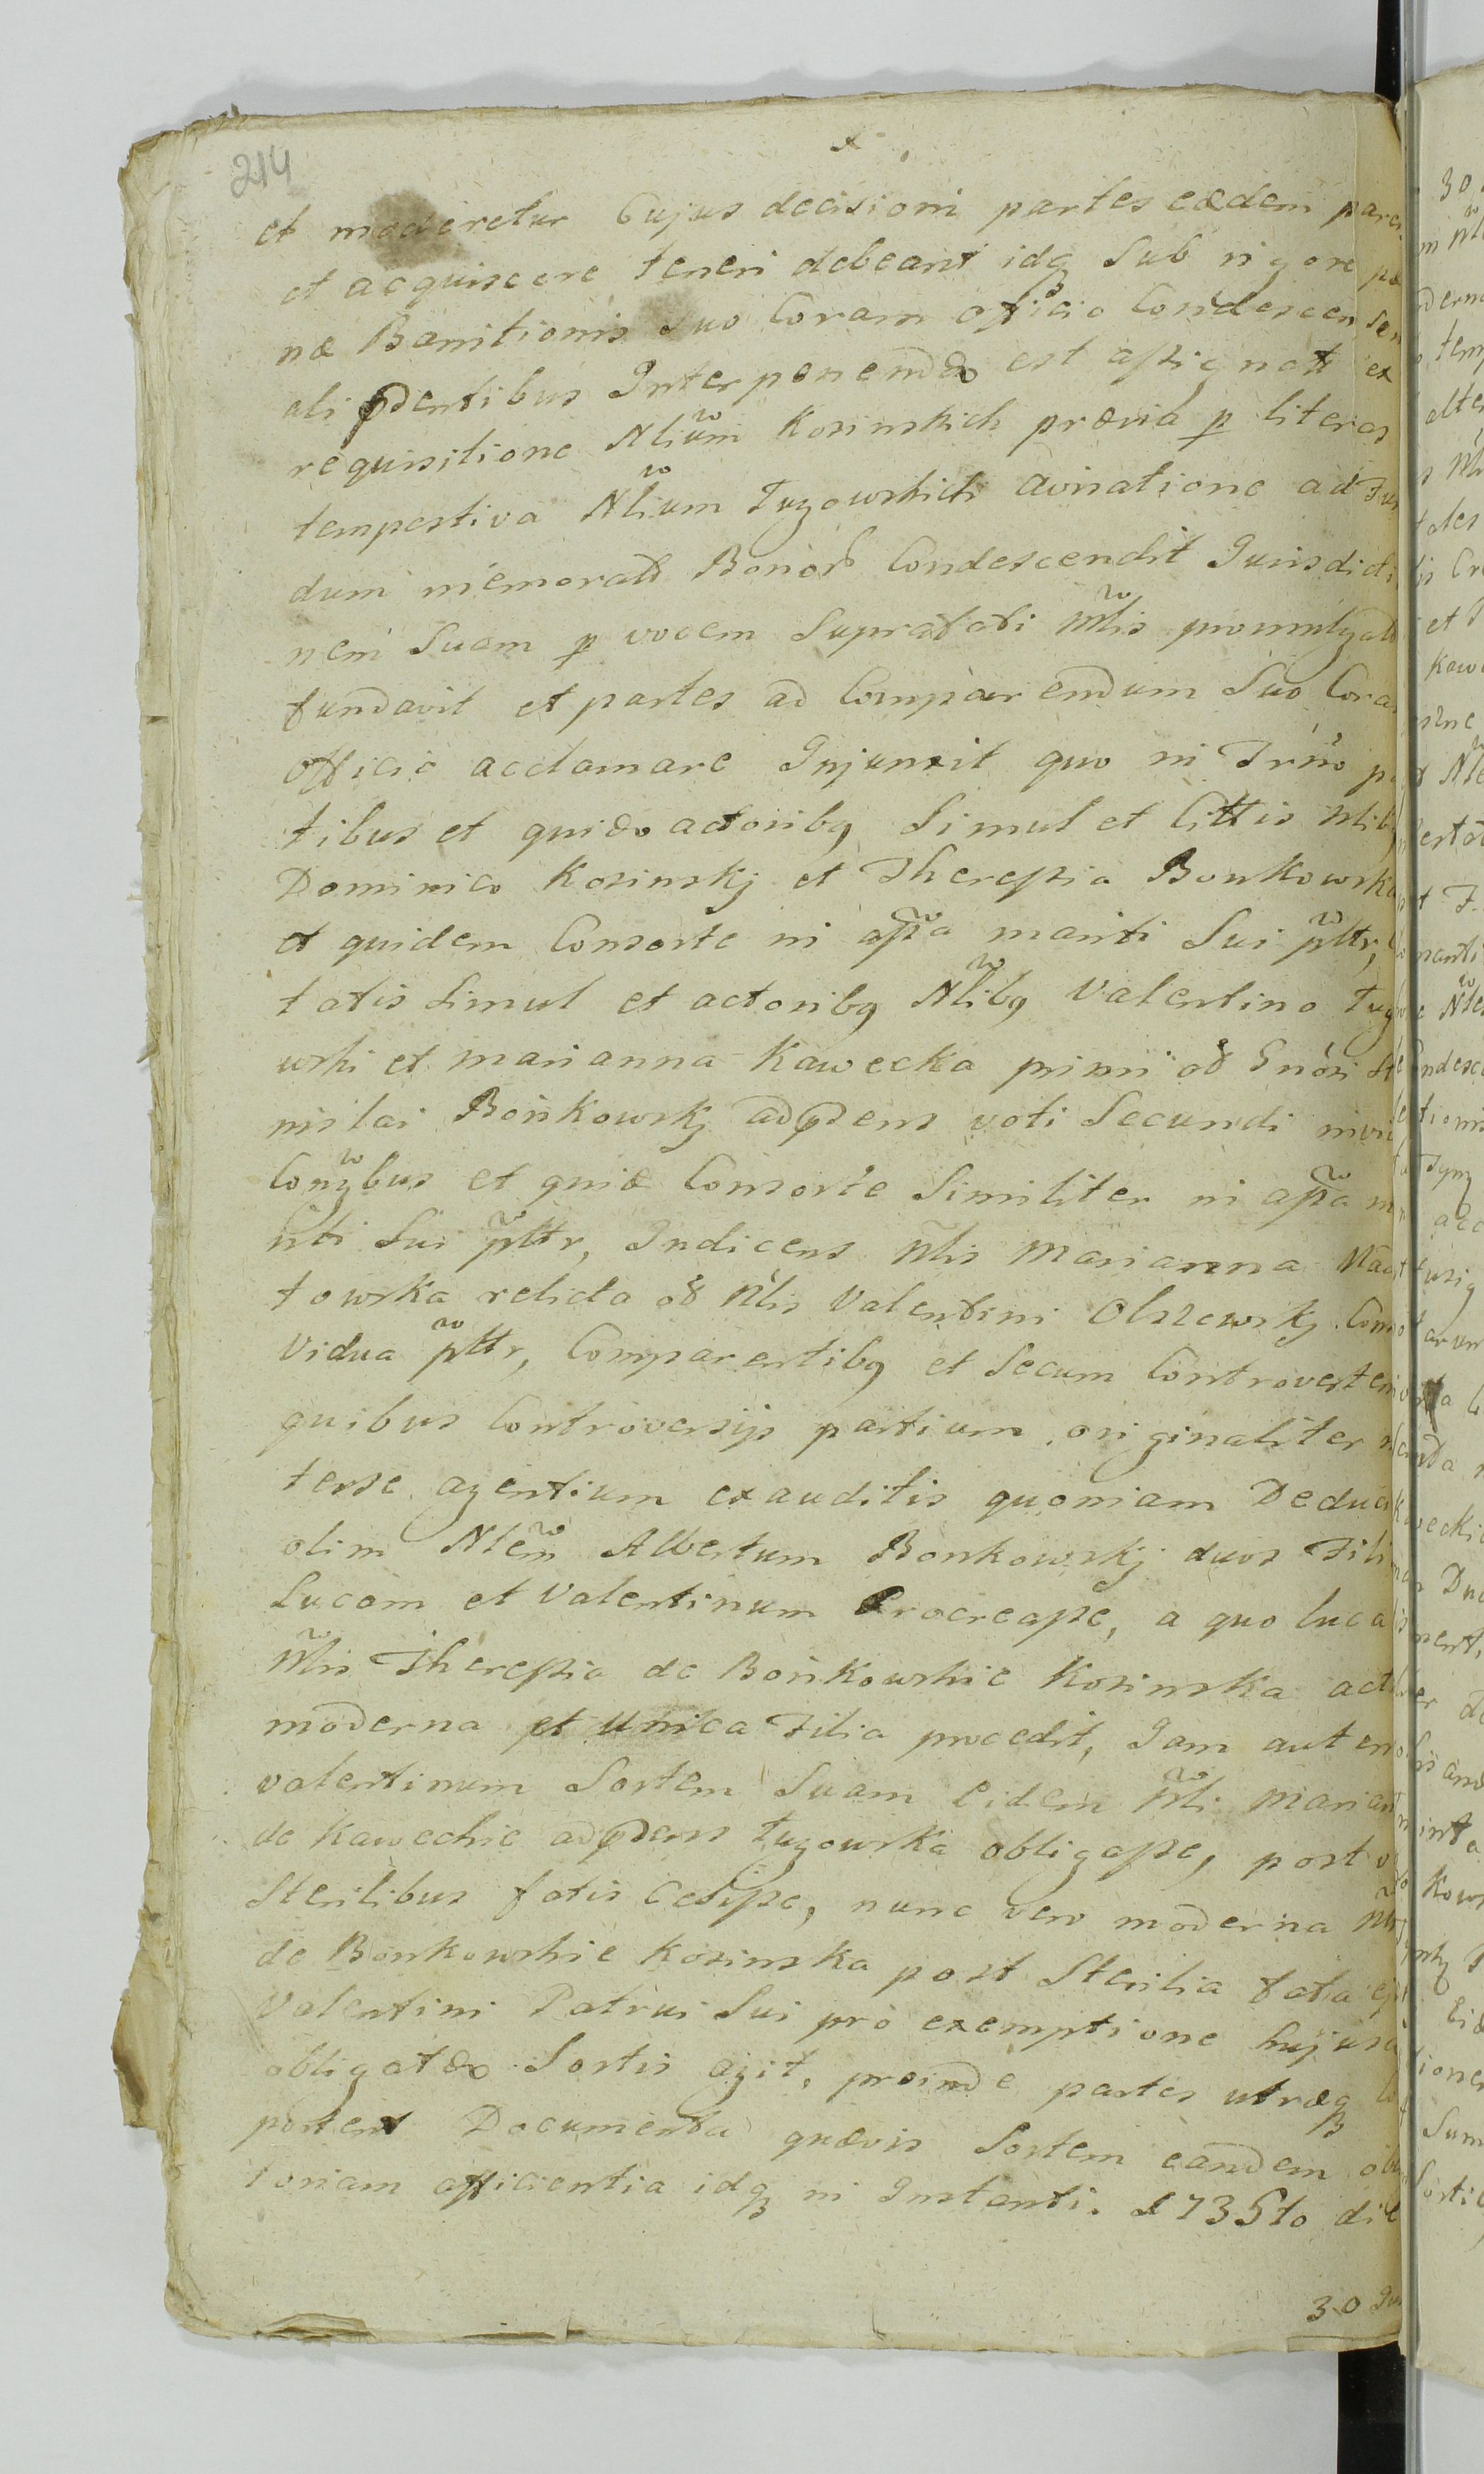 214
et moderetur Cujus decisioni partes eædem pare
et acquiscere teneri debeant idq Sub rigore pæ
næ Banitionis suo Coram officio Condescen sen
ali pdentibus Interponendæ est assignatt ex
requisitione Nlium Kosinskich prævia p literas
tempestiva Nlium Tuzowskich avisatione ad Fun
dum memoratt Bonor Condescendit Jurisdicti
nem Suam p vocem Suprafati Mlis promulgatt
fundavit et partes ad Comparendum Suo Cora
officio acclamare Injunxit quo in Trmo p
tibus et quidẽ actoribq Simul et Cittis Nlib
Dominico Kosinskj et Theressia Bonkowska
et quidem Consorte in assa mariti Sui plttr,
tatis Simul et actoribq Nlibq Valentino Tuz
wski et Marianna Kawecka primi od Gnosi St
nislai Bonkowskj adpdens voti Secundi invic
Conzbus et quidæ Consorte Similiter in assa m
riti Sui plttr, Indicens Nlis Marianna
towska relicta od Nlis Valentini Olszewskj Cons
Vidua plttr, Comparentibq et Secum Controverten
quibus Controversijs partium originaliter n
terse agentium exauditis quoniam Deduci
olim Nlem Albertum Bonkowskj duos Fili
Lucam et Valentinum Procreasse, a quo Luca
Nlis Theressia de Bonkowskie Kosinska act
moderna et Unica Filia procedit, Jam autem
Valentinum Sortem Suam eidem Nli Marian
de Kaweckie adpdens Tuzowska obligasse, post
Sterilibus fatis Cessisse, nunc vero moderna Nlis
de Bonkowskie Kosinska post Sterilia fata ej
Valentini Patrui Sui pro exemptione hujus
obligatæ Sortis agit, proinde partes utræq
portent Documenta quævis Sortem eandem ob
toriam afficientia idq in Instanti. 1735to die
30